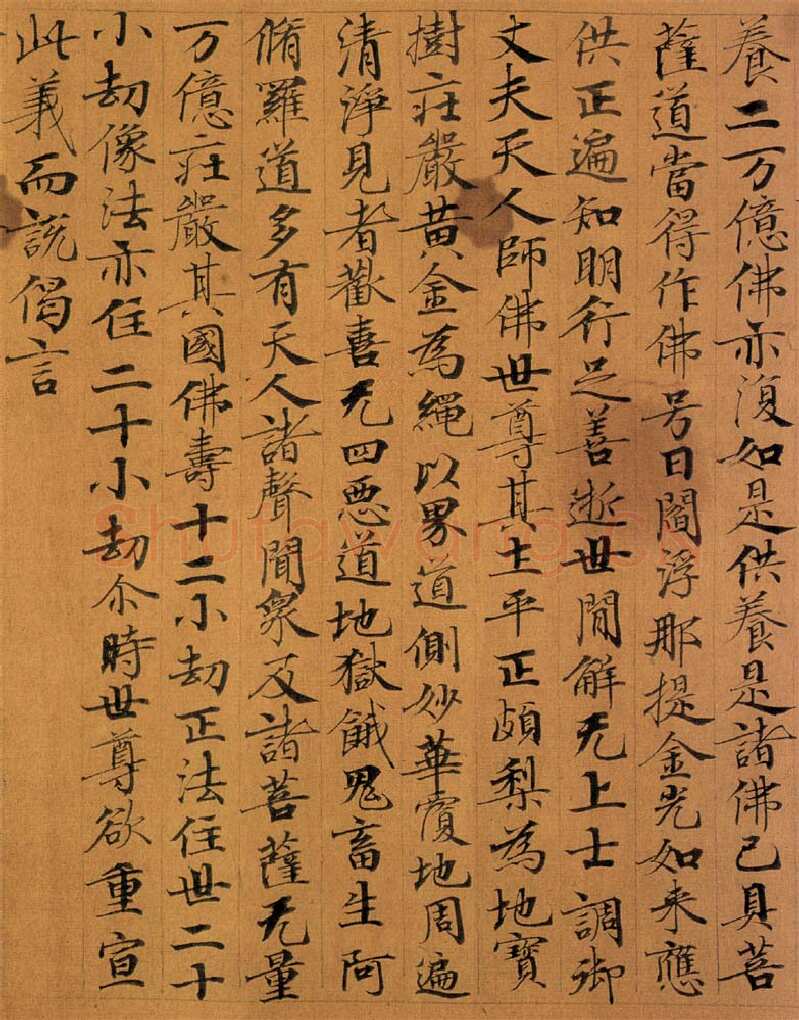 養二万億佛亦復如是供養是諸佛已具菩
薩道當得作佛号曰閻浮那提金光如来應
供正遍知明行足善逝世間解无上士調御
丈夫天人師佛世尊其土平正頗梨為地寶
樹莊嚴黃金為繩以界道側妙華覆地周遍
清淨見者歡喜无四惡道地獄餓鬼畜生阿
脩羅道多有天人諸聲聞眾及諸菩薩无量
万億莊嚴其國佛壽十二小劫正法住世二十
小劫像法亦住二十小劫尒時世尊欲重宣
此義而說偈言